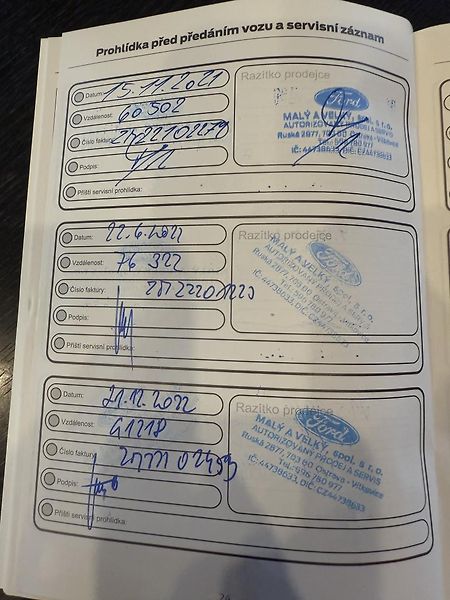 Prohlídka před předáním vozu a servisní záznam
Datum: 15.11.2021
Vzdálenost: 60 502
Číslo faktury:
Podpis:
Příští servisní prohlídka:
Razítko prodejce
Ford
MALÝ A VELKÝ, spol. s r.o.
AUTORIZOVANÝ PRODEJ A SERVIS
Ruská 2877, 703 00 Ostrava - Vítkovice
Tel.: 596 780 977
IČ: 44738633, DIČ: CZ44738633
Datum: 22.6.2022
Vzdálenost: 76 322
Číslo faktury:
Podpis:
Příští servisní prohlídka:
Razítko prodejce
Ford
MALÝ A VELKÝ, spol. s r.o.
AUTORIZOVANÝ PRODEJ A SERVIS
Ruská 2877, 703 00 Ostrava - Vítkovice
Tel.: 596 780 977
IČ: 44738633, DIČ: CZ44738633
Datum: 21.12.2022
Vzdálenost: 91218
Číslo faktury:
Podpis:
Příští servisní prohlídka:
Razítko prodejce
Ford
MALÝ A VELKÝ, spol. s r.o.
AUTORIZOVANÝ PRODEJ A SERVIS
Ruská 2877, 703 00 Ostrava - Vítkovice
Tel.: 596 780 977
IČ: 44738633, DIČ: CZ44738633